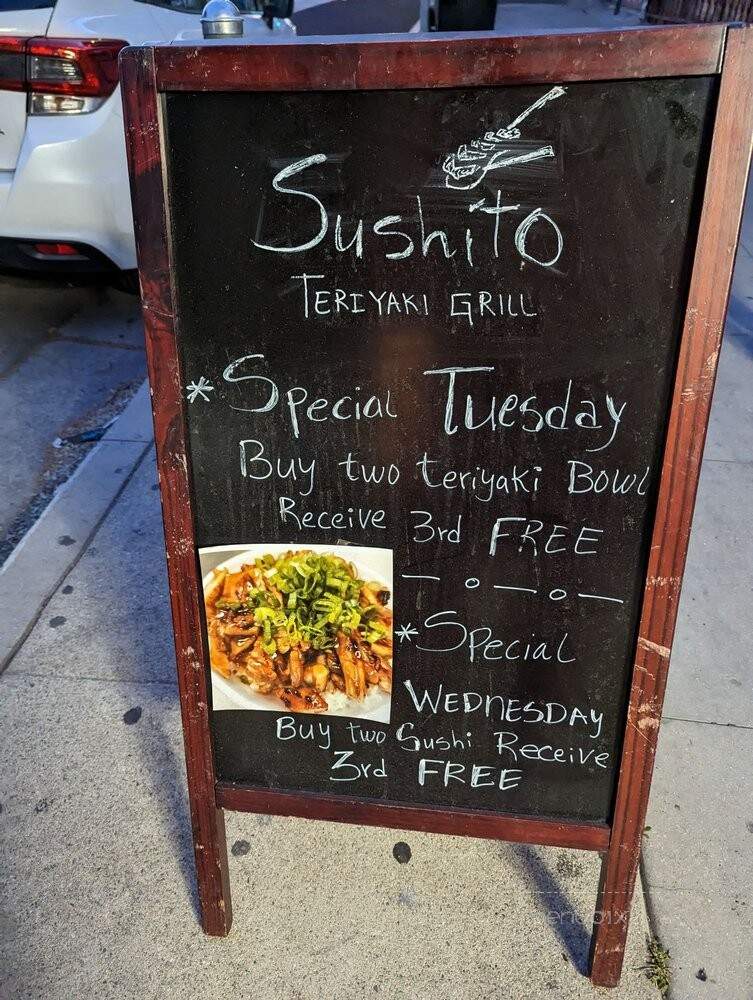 Sushito
TERIYAKI GRILL
*Special Tuesday
Buy two teriyaki BOWL
Receive 3rd FREE
*Special
WEDNESDAY
Buy two Sushi Receive
3rd FREE